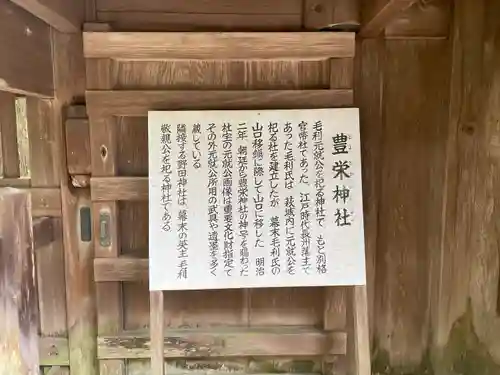 豊栄神社
毛利元就公を祀る神社で もと別格
官幣社であった、江戸時代長州藩主で
あった毛利氏は 萩城内に元就公を
祀る社を建立したが 幕末毛利氏の
山口移鎮に際して山口に移した 明治
二年 朝廷から豊栄神社の神号を賜わった
社宝の元就公画像は重要文化財指定で
その外元就公所用の武具や遺墨を多く
蔵している
隣接する野田神社は 幕末の英主 毛利
敬親公を祀る神社である